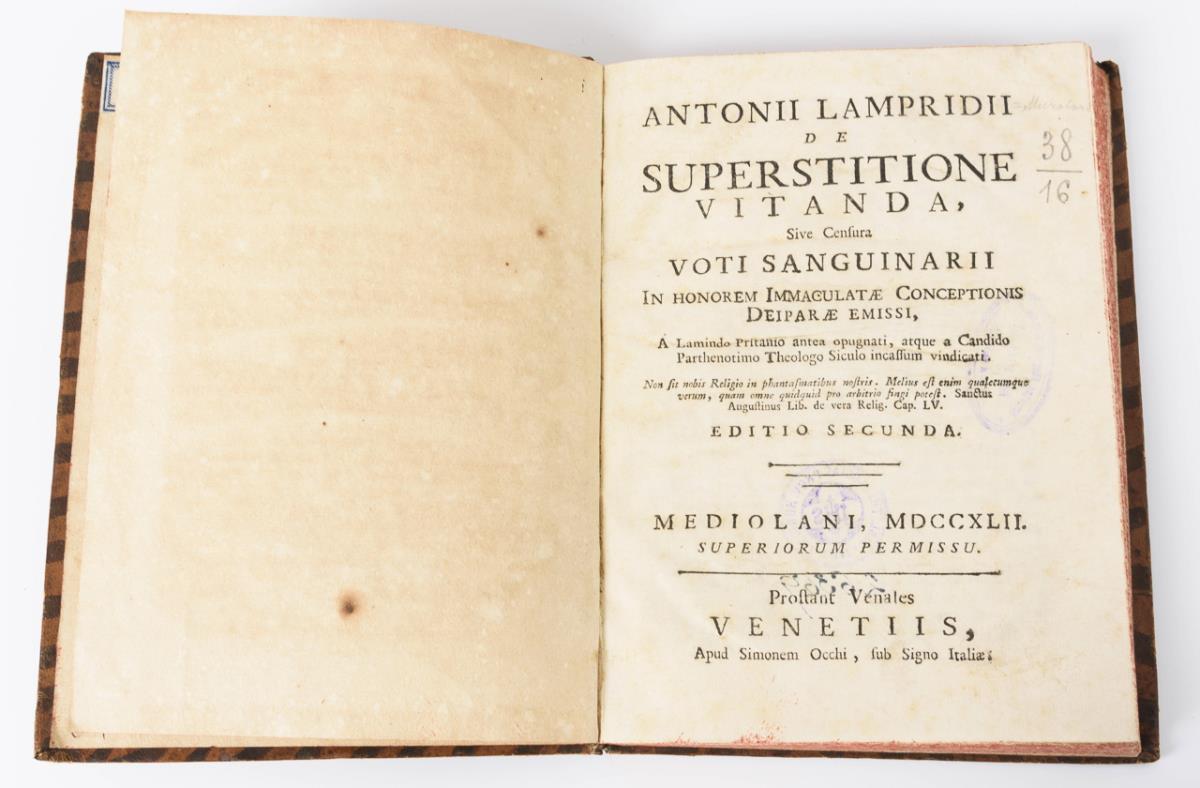 ANTONII LAMPRIDII
DE
SUPERSTITIONE
VITANDA,
Sive Cenſura
VOTI SANGUINARII
IN HONOREM IMMACULATÆ CONCEPTIONIS
DEIPARÆ EMISSI,
A Lamindo Pritanio antea opugnati, atque a Candido
Parthenotimo Theologo Siculo incaſſum vindicati.
Non ſit nobis Religio in phantaſmatibus noſtris. Melius eſt enim qualecumque
verum, quam omne quidquid pro arbitrio fingi poteſt. Sanctus
Auguſtinus Lib. de vera Relig. Cap. LV.
EDITIO SECUNDA.
MEDIOLANI, MDCCXLII.
SUPERIORUM PERMISSU.
Proſtant Venales
VENETIIS,
Apud Simonem Occhi, ſub Signo Italiæ.
38
16